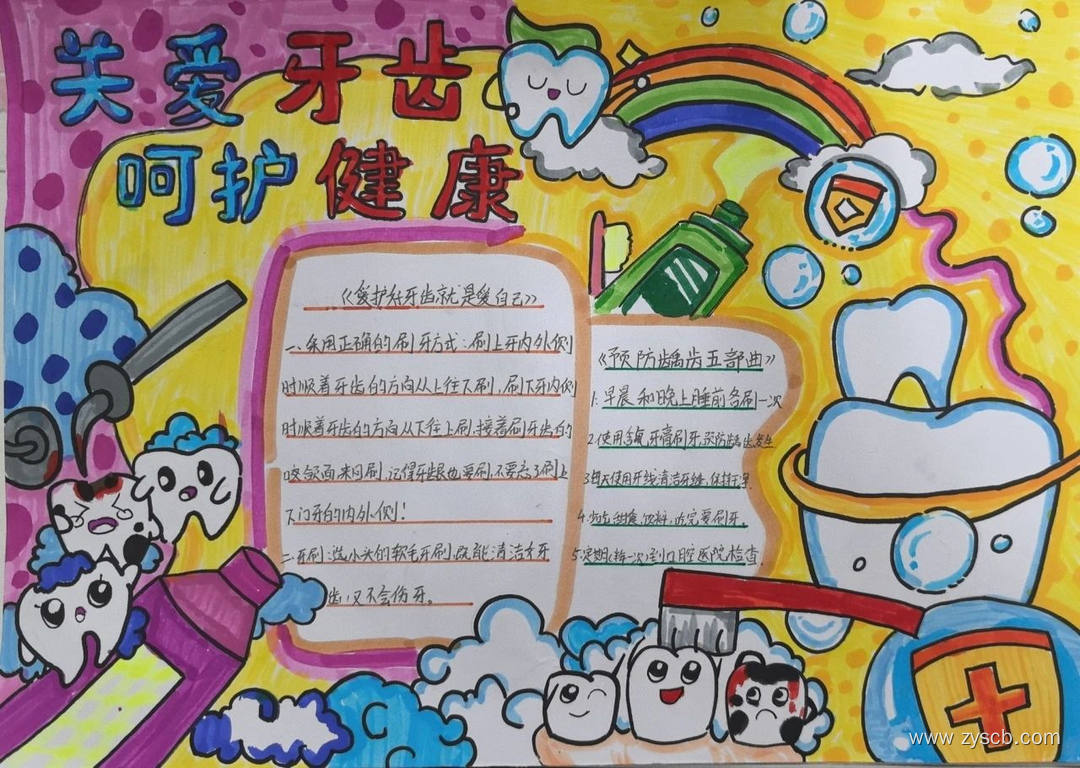 关爱牙齿
呵护健康
《爱护好牙齿就是爱自己》
一、采用正确的刷牙方式：刷上牙内外侧
时顺着牙齿的方向从上往下刷，刷下牙内侧
时顺着牙齿的方向从下往上刷，接着刷牙齿的
咬颌面来回刷，记得牙龈也要刷，不要忘了刷上
下门牙的内外侧！
二、牙刷：选小头的软毛牙刷，既能清洁牙
齿，又不会伤牙。
《预防龋齿五部曲》
1.早晨和晚上睡前各刷一次
2.使用含氟牙膏刷牙，预防龋齿发生
3.每天使用牙线清洁牙缝，保持干净
4.少吃甜食、饮料，吃完要刷牙。
5.定期一次到口腔医院检查。
www.zyscb.com